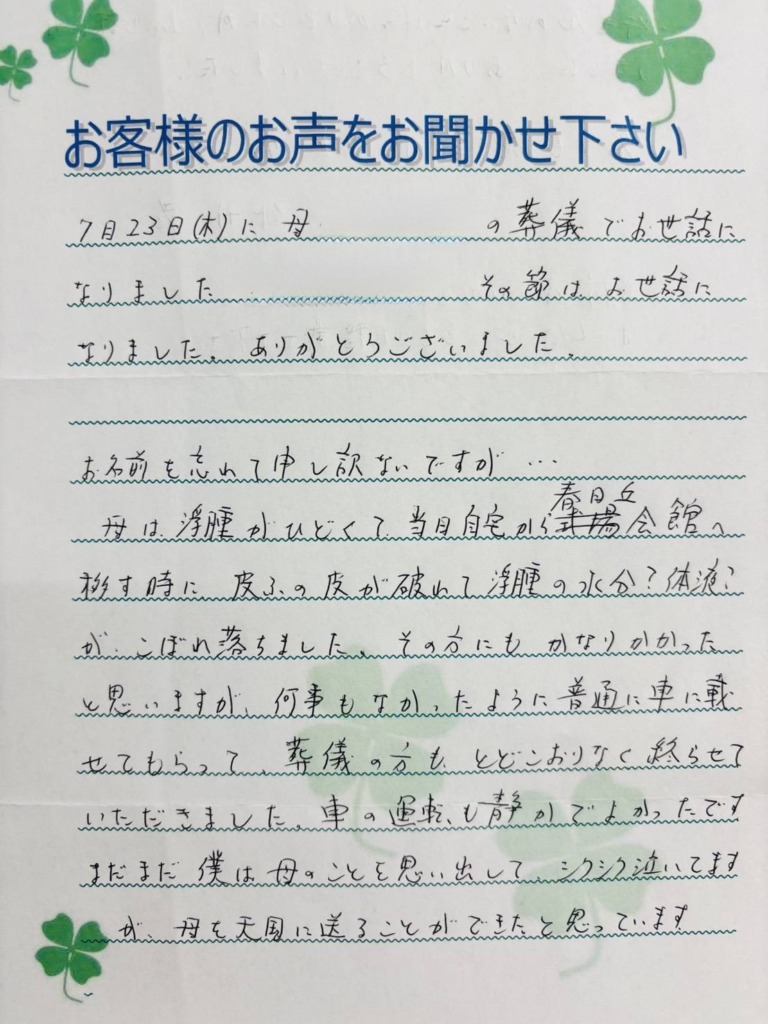 お客様のお声をお聞かせ下さい
7月23日(木)に 母 の葬儀でお世話に
なりました その節は お世話に
なりました。ありがとうございました。
お名前を忘れて申し訳ないですが…
母は浮腫がひどくて、当日自宅から春日丘会館へ
移す時に 皮ふの皮が破れて浮腫の水分?体液?
が、こぼれ落ちました。その方にも かなりかかった
と思いますが、何事もなかったように普通に車に載
せてもらって、葬儀の方も とどこおりなく終らせて
いただきました。車の運転も静かでよかったです
まだまだ 僕は母のことを思い出して、シクシク泣いてます
が、母を天国に送ることができたと思っています